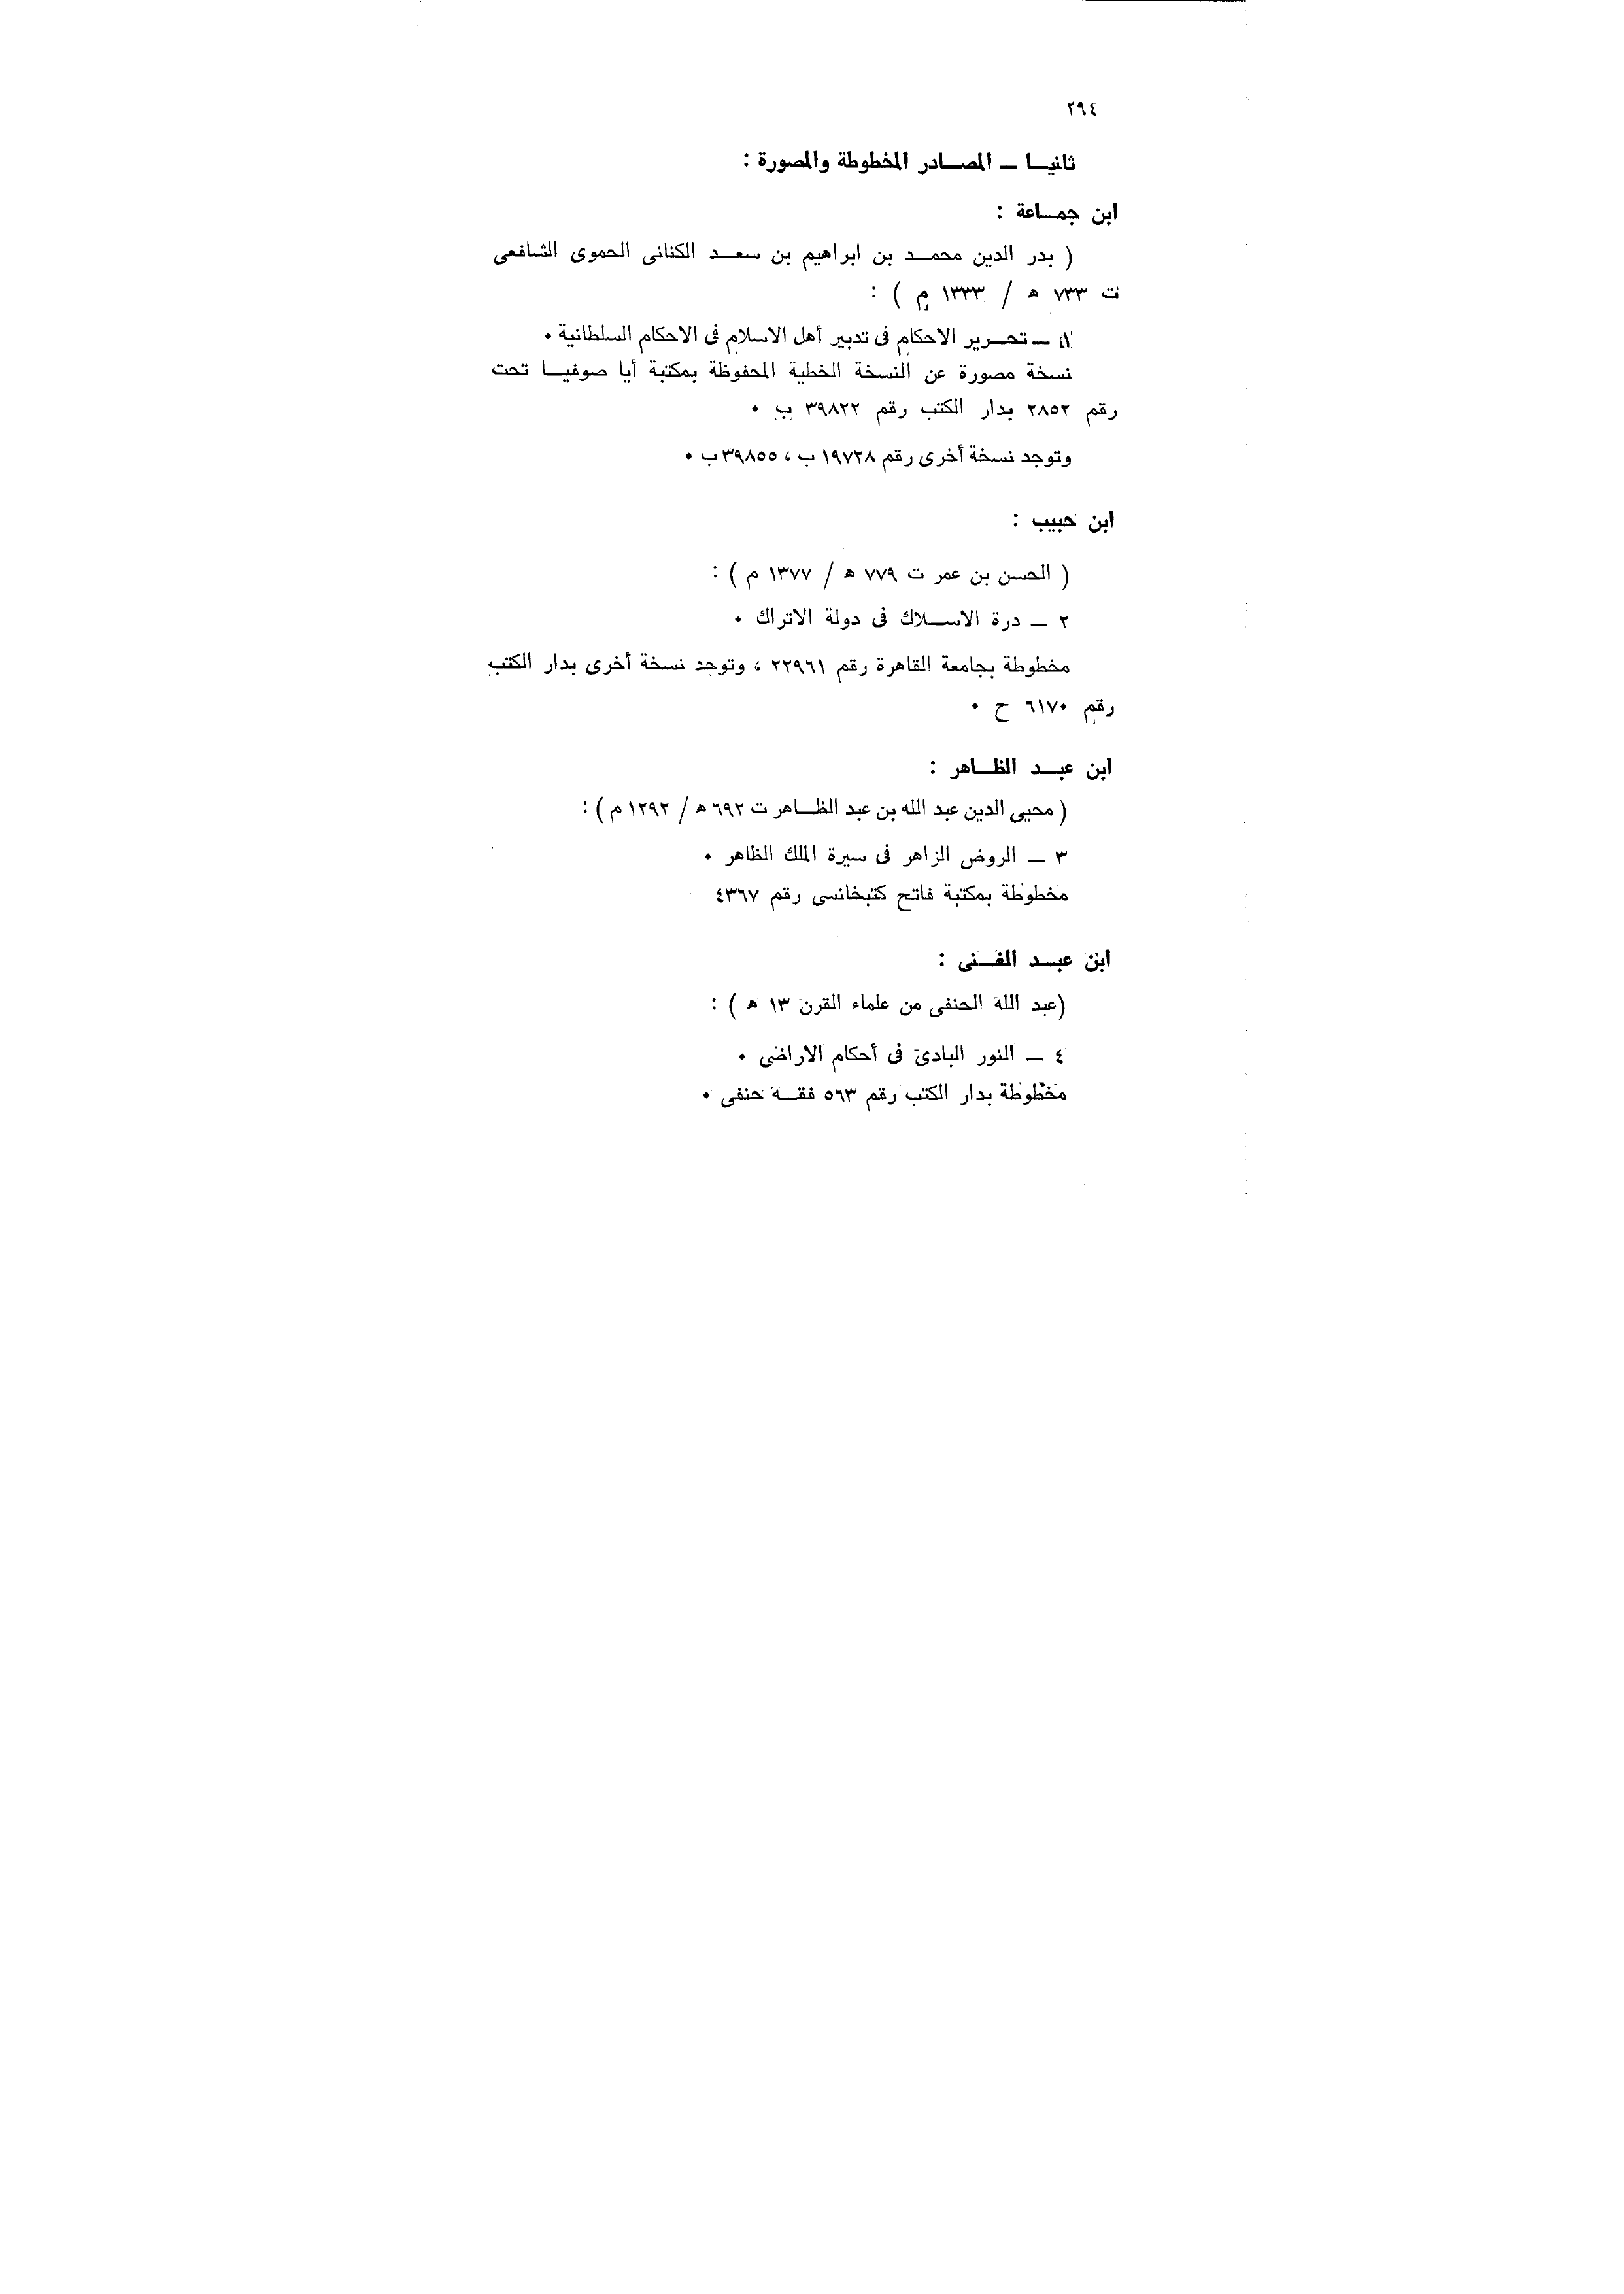 ٢٩٤
ثانيا — المصادر المخطوطة والمصورة :
ابن جماعة :
( بدر الدين محمد بن ابراهيم بن سعد الكنانى الحموى الشافعى
ت ٧٣٣ ه / ١٣٣٣ م ) :
١ — تحرير الاحكام فى تدبير أهل الاسلام فى الاحكام السلطانية ٠
نسخة مصورة عن النسخة الخطية المحفوظة بمكتبة أيا صوفيا تحت
رقم ٢٨٥٢ بدار الكتب رقم ٣٩٨٢٢ ب ٠
وتوجد نسخة أخرى رقم ١٩٧٢٨ ب ، ٣٩٨٥٥ ب ٠
ابن حبيب :
( الحسن بن عمر ت ٧٧٩ ه / ١٣٧٧ م ) :
٢ — درة الاسلاك فى دولة الاتراك ٠
مخطوطة بجامعة القاهرة رقم ٢٢٩٦١ ، وتوجد نسخة أخرى بدار الكتب
رقم ٦١٧٠ ح ٠
ابن عبد الظاهر :
( محيى الدين عبد الله بن عبد الظاهر ت ٦٩٢ ه / ١٢٩٢ م ) :
٣ — الروض الزاهر فى سيرة الملك الظاهر ٠
مخطوطة بمكتبة فاتح كتبخانسى رقم ٤٣٦٧
ابن عبد الغنى :
(عبد الله الحنفى من علماء القرن ١٣ ه ) :
٤ — النور البادى فى أحكام الاراضى ٠
مخطوطة بدار الكتب رقم ٥٦٣ فقه حنفى ٠